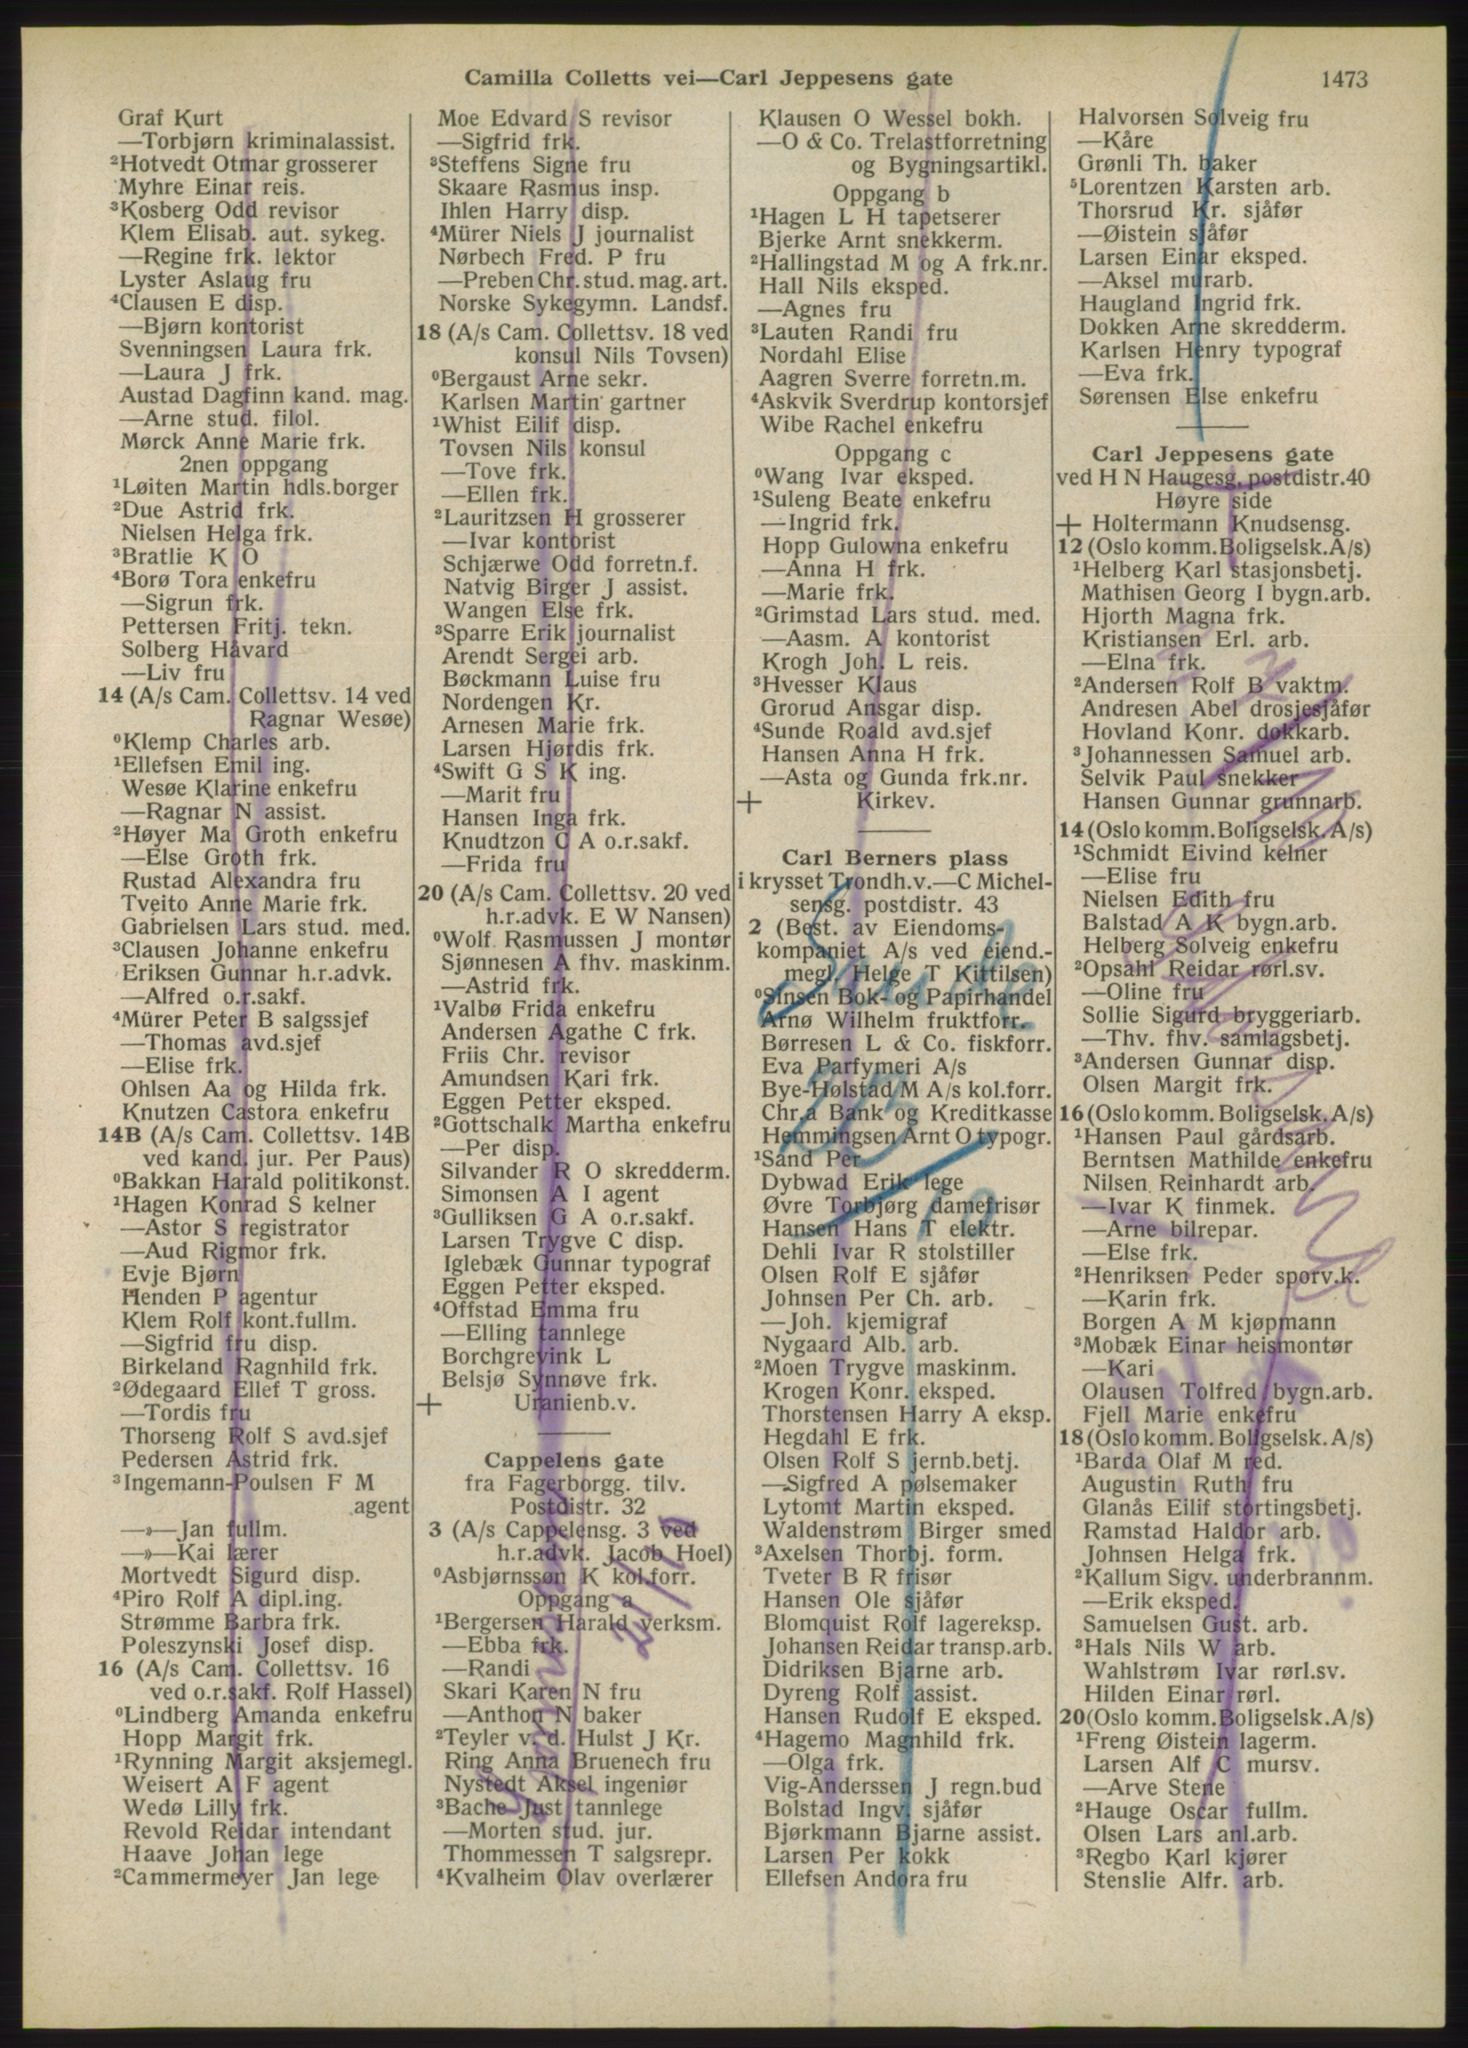 Camilla Colletts vei—Carl Jeppesens gate
1473
Graf Kurt
—Torbjørn kriminalassist.
²Hotvedt Otmar grosserer
Myhre Einar reis.
³Kosberg Odd revisor
Klem Elisab. aut. sykeg.
—Regine frk. lektor
Lyster Aslaug fru
⁴Clausen E disp.
—Bjørn kontorist
Svenningsen Laura frk.
—Laura J frk.
Austad Dagfinn kand. mag.
—Arne stud. filol.
Mørck Anne Marie frk.
2nen oppgang
¹Løiten Martin hdls.borger
²Due Astrid frk.
Nielsen Helga frk.
³Bratlie K O
⁴Borø Tora enkefru
—Sigrun frk.
Pettersen Fritj. tekn.
Solberg Håvard
—Liv fru
14 (A/s Cam. Collettsv. 14 ved
Ragnar Wesøe)
⁰Klemp Charles arb.
¹Ellefsen Emil ing.
Wesøe Klarine enkefru
—Ragnar N assist.
²Høyer Ma Groth enkefru
—Else Groth frk.
Rustad Alexandra fru
Tveito Anne Marie frk.
Gabrielsen Lars stud. med.
³Clausen Johanne enkefru
Eriksen Gunnar h.r.advk.
—Alfred o.r.sakf.
⁴Mürer Peter B salgssjef
—Thomas avd.sjef
—Elise frk.
Ohlsen Aa og Hilda frk.
Knutzen Castora enkefru
14B (A/s Cam. Collettsv. 14B
ved kand. jur. Per Paus)
⁰Bakkan Harald politikonst.
¹Hagen Konrad S kelner
—Astor S registrator
—Aud Rigmor frk.
Evje Bjørn
Henden P agentur
Klem Rolf kont.fullm.
—Sigfrid fru disp.
Birkeland Ragnhild frk.
²Ødegaard Ellef T gross.
—Tordis fru
Thorseng Rolf S avd.sjef
Pedersen Astrid frk.
³Ingemann-Poulsen F M
agent
—»—Jan fullm.
—»—Kai lærer
Mortvedt Sigurd disp.
⁴Piro Rolf A dipl.ing.
Strømme Barbra frk.
Poleszynski Josef disp.
16 (A/s Cam. Collettsv. 16
ved o.r.sakf. Rolf Hassel)
⁰Lindberg Amanda enkefru
Hopp Margit frk.
¹Rynning Margit aksjemegl.
Weisert A F agent
Wedø Lilly frk.
Revold Reidar intendant
Haave Johan lege
²Cammermeyer Jan lege
Moe Edvard S revisor
—Sigfrid frk.
³Steffens Signe fru
Skaare Rasmus insp.
Ihlen Harry disp.
⁴Mürer Niels J journalist
Nørbech Fred. P fru
—Preben Chr. stud. mag. art.
Norske Sykegymn. Landsf.
18 (A/s Cam. Collettsv. 18 ved
konsul Nils Tovsen)
⁰Bergaust Arne sekr.
Karlsen Martin gartner
¹Whist Eilif disp.
Tovsen Nils konsul
—Tove frk.
—Ellen frk.
²Lauritzsen H grosserer
—Ivar kontorist
Schjærwe Odd forretn.f.
Natvig Birger J assist.
Wangen Else frk.
³Sparre Erik journalist
Arendt Sergei arb.
Bøckmann Luise fru
Nordengen Kr.
Arnesen Marie frk.
Larsen Hjørdis frk.
⁴Swift G S K ing.
—Marit fru
Hansen Inga frk.
Knudtzon C A o.r.sakf.
—Frida fru
20 (A/s Cam. Collettsv. 20 ved
h.r.advk. E W Nansen)
⁰Wolf Rasmussen J montør
Sjønnesen A fhv. maskinm.
—Astrid frk.
¹Valbø Frida enkefru
Andersen Agathe C frk.
Friis Chr. revisor
Amundsen Kari frk.
Eggen Petter eksped.
²Gottschalk Martha enkefru
—Per disp.
Silvander R O skredderm.
Simonsen A I agent
³Gulliksen G A o.r.sakf.
Larsen Trygve C disp.
Iglebæk Gunnar typograf
Eggen Petter eksped.
⁴Offstad Emma fru
—Elling tannlege
Borchgrevink L
Belsjø Synnøve frk.
+ Uranienb.v.
Cappelens gate
fra Fagerborgg. tilv.
Postdistr. 32
3 (A/s Cappelensg. 3 ved
h.r.advk. Jacob Hoel)
⁰Asbjørnsson K kol.forr.
Oppgang a
¹Bergersen Harald verksm.
—Ebba frk.
—Randi
Skari Karen N fru
—Anthon N baker
²Teyler v. d. Hulst J Kr.
Ring Anna Bruenech fru
Nystedt Aksel ingeniør
³Bache Just tannlege
—Morten stud. jur.
Thommessen T salgsrepr.
⁴Kvalheim Olav overlærer
Klausen O Wessel bokh.
—O & Co. Trelastforretning
og Bygningsartikl.
Oppgang b
¹Hagen L H tapetserer
Bjerke Arnt snekkerm.
²Hallingstad M og A frk.nr.
Hall Nils eksped.
—Agnes fru
³Lauten Randi fru
Nordahl Elise
Aagren Sverre forretn.m.
⁴Askvik Sverdrup kontorsjef
Wibe Rachel enkefru
Oppgang c
⁰Wang Ivar eksped.
¹Suleng Beate enkefru
—Ingrid frk.
Hopp Gulowna enkefru
—Anna H frk.
—Marie frk.
²Grimstad Lars stud. med.
—Aasm. A kontorist
Krogh Joh. L reis.
³Hvesser Klaus
Grorud Ansgar disp.
⁴Sunde Roald avd.sjef
Hansen Anna H frk.
—Asta og Gunda frk.nr.
+ Kirkev.
Carl Berners plass
i krysset Trondh.v.—C Michel-
sensg. postdistr. 43
2 (Best. av Eiendoms-
kompaniet A/s ved eiend.-
megl. Helge T Kittilsen)
⁰Sinsen Bok- og Papirhandel
Arnø Wilhelm fruktforr.
Børresen L & Co. fiskforr.
Eva Parfymeri A/s
Bye-Hølstad M A/s kol.forr.
Chr.a Bank og Kreditkasse
Hemmingsen Arnt O typogr.
¹Sand Per
Dybwad Erik lege
Øvre Torbjørg damefrisør
Hansen Hans T elektr.
Dehli Ivar R stolstiller
Olsen Rolf E sjåfør
Johnsen Per Ch. arb.
—Joh. kjemigraf
Nygaard Alb. arb.
²Moen Trygve maskinm.
Krogen Konr. eksped.
Thorstensen Harry A eksp.
Hegdahl E frk.
Olsen Rolf S jernb.betj.
—Sigfred A pølsemaker
Lytomt Martin eksped.
Waldenstrøm Birger smed
³Axelsen Thorbj. form.
Tveter B R frisør
Hansen Ole sjåfør
Blomquist Rolf lagereksp.
Johansen Reidar transp.arb.
Didriksen Bjarne arb.
Dyreng Rolf assist.
Hansen Rudolf E eksped.
⁴Hagemo Magnhild frk.
—Olga frk.
Vig-Anderssen J regn.bud
Bolstad Ingv. sjåfør
Bjørkmann Bjarne assist.
Larsen Per kokk
Ellefsen Andora fru
Halvorsen Solveig fru
—Kåre
Grønli Th. baker
⁵Lorentzen Karsten arb.
Thorsrud Kr. sjåfør
—Øistein sjåfør
Larsen Einar eksped.
—Aksel murarb.
Haugland Ingrid frk.
Dokken Arne skredderm.
Karlsen Henry typograf
—Eva frk.
Sørensen Else enkefru
Carl Jeppesens gate
ved H N Haugesg. postdistr.40
Høyre side
+ Holtermann Knudsensg.
12 (Oslo komm.Boligselsk.A/s)
¹Helberg Karl stasjonsbetj.
Mathisen Georg I bygn.arb.
Hjorth Magna frk.
Kristiansen Erl. arb.
—Elna frk.
²Andersen Rolf B vaktm.
Andresen Abel drosjesjåfør
Hovland Konr. dokkarb.
³Johannessen Samuel arb.
Selvik Paul snekker
Hansen Gunnar grunnarb.
14 (Oslo komm.Boligselsk.A/s)
¹Schmidt Eivind kelner
—Elise fru
Nielsen Edith fru
Balstad A K bygn.arb.
Helberg Solveig enkefru
²Opsahl Reidar rørl.sv.
—Oline fru
Sollie Sigurd bryggeriarb.
—Thv. fhv. samlagsbetj.
³Andersen Gunnar disp.
Olsen Margit frk.
16 (Oslo komm.Boligselsk.A/s)
¹Hansen Paul gårdsarb.
Berntsen Mathilde enkefru
Nilsen Reinhardt arb.
—Ivar K finmek.
—Arne bilrepar.
—Else frk.
²Henriksen Peder sporv.k.
—Karin frk.
Borgen A M kjøpmann
³Mobæk Einar heismontør
—Kari
Olausen Tolfred bygn.arb.
Fjell Marie enkefru
18 (Oslo komm.Boligselsk.A/s)
¹Barda Olaf M red.
Augustin Ruth fru
Glanås Eilif stortingsbetj.
Ramstad Haldor arb.
Johnsen Helga frk.
²Kallum Sigv. underbrannm.
—Erik eksped.
Samuelsen Gust. arb.
³Hals Nils W arb.
Wahlstrøm Ivar rørl.sv.
Hilden Einar rørl.
20 (Oslo komm.Boligselsk.A/s)
¹Freng Øistein lagerm.
Larsen Alf C mursv.
—Arve Stene
²Hauge Oscar fullm.
Olsen Lars anl.arb.
³Regbo Karl kjører
Stenslie Alfr. arb.